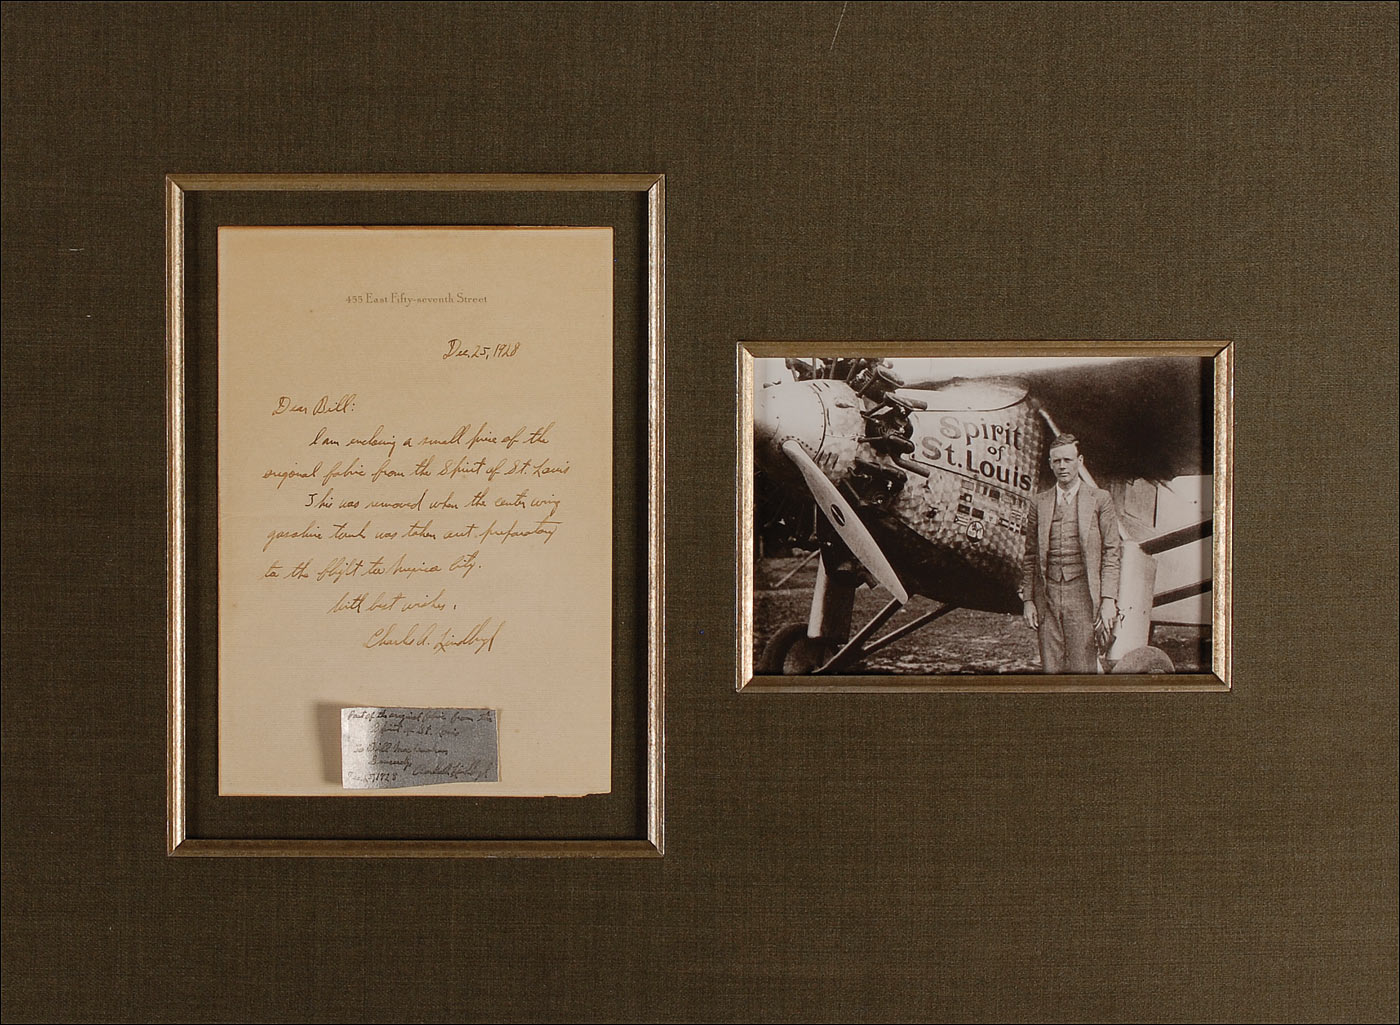 455 East Fifty-seventh Street
Dec. 25, 1928
Dear Bill:
I am enclosing a small piece of the
original fabric from the Spirit of St. Louis
This was removed when the center wing
gasoline tank was taken out preparatory
to the flight to Mexico City.
With best wishes,
Charles A. Lindbergh
Part of the original fabric from the
Spirit of St. Louis
To Bill
Sincerely
Dec. 25, 1928 Charles A. Lindbergh
Spirit
of
St. Louis